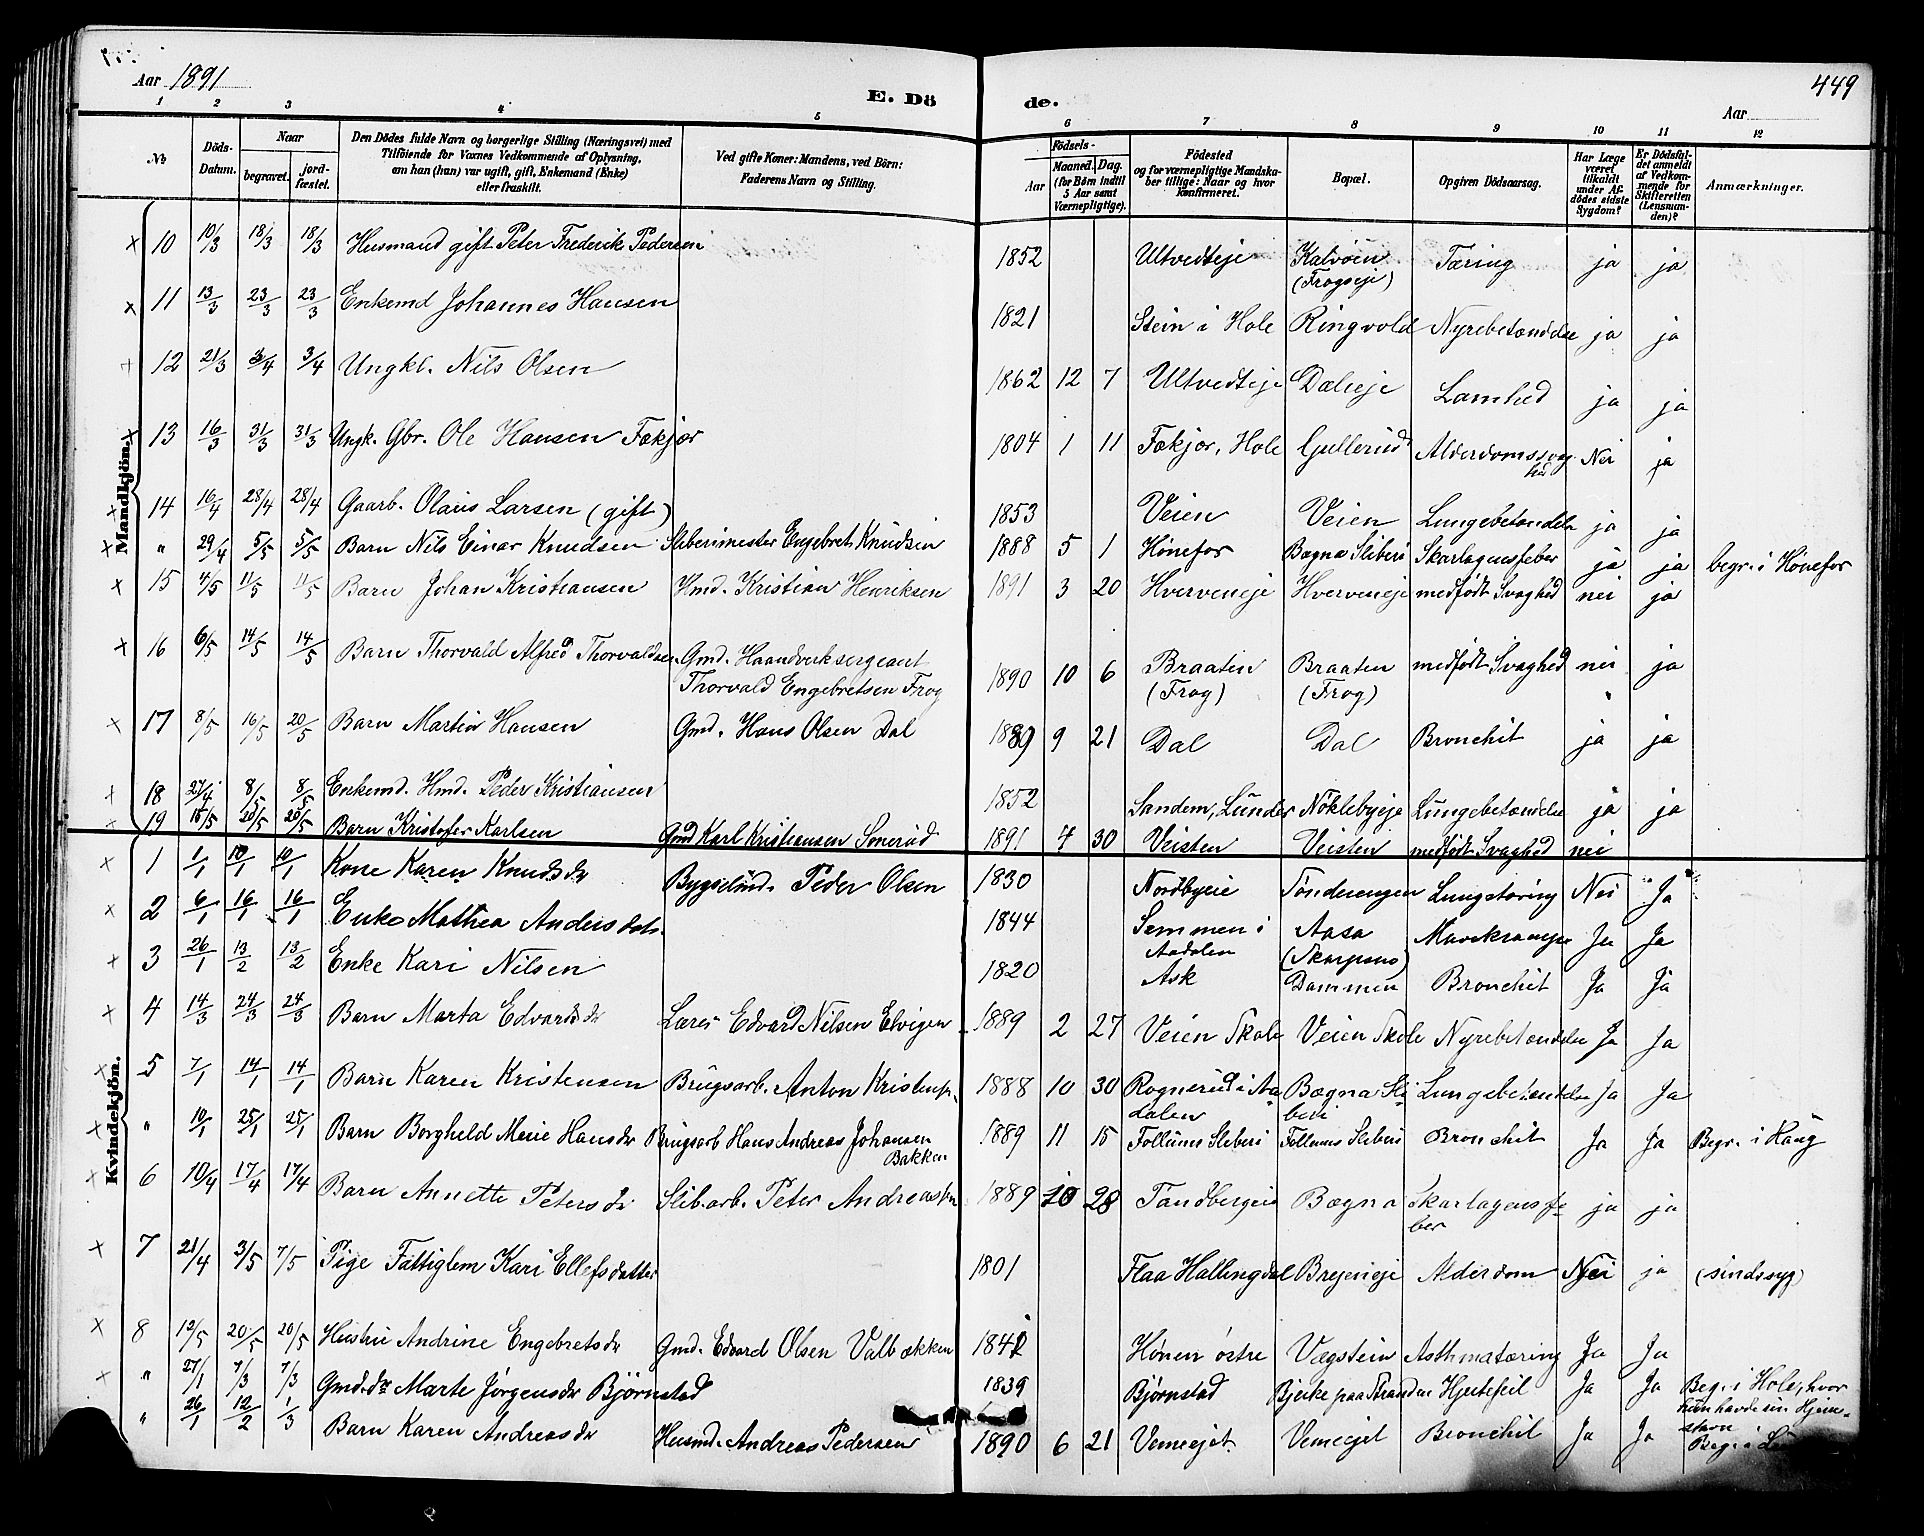 Aar 1891
E. Dö
de.
449
Aar
1 2 3 4 5 6 7 8 9 10 11 12
No
Döds-Datum.
Naar
begravet.
jord-fæstet.
Den Dödes fulde Navn og borgerlige Stilling (Næringsvei) med
Tilföiende for Voxnes Vedkommende af Oplysning,
om han (hun) var ugift, gift, Enkemand (Enke)
eller fraskilt.
Ved gifte Koner: Mandens, ved Börn:
Faderens Navn og Stilling.
Födsels-
Aar
Maaned. Dag.
(for Börn indtil
5 Aar samt
Værnepligtige).
Födested
og for værnepligtige Mandska-
ber tillige: Naar og hvor
konfirmeret.
Bopæl.
Opgiven Dödsaarsag.
Har Læge
været
tilkaldt
under Af-
dödes sidste
Sygdom?
Er Dödsfal-
det anmeldt
af Vedkom-
mende for
Skifteretten
(Lensman-
den)?
Anmærkninger.
Mandkjön.
× 10 10/3 18/3 18/3 Husmand gift Peter Frederik Pedersen 1852 Ultvedteje Kalvøen (Frogseje) Tæring ja ja
× 11 13/3 23/3 23/3 Enkemd Johannes Hansen 1821 Stein i Hole Ringvold Nyrebetændelse ja ja
× 12 21/3 3/4 3/4 Ungkl. Nils Olsen 1862 12 7 Ultvedteje Dæleje Lamhed ja ja
× 13 16/3 31/3 31/3 Ungk. Gbr. Ole Hansen Fækjør 1804 1 11 Fækjør, Hole Gullerud Alderdomssvaghed Nei ja
× 14 16/4 28/4 28/4 Gaarb. Olaus Larsen (gift) 1853 Veien Veien Lungebetændelse ja ja
× " 29/4 5/5 5/5 Barn Nils Einar Knudsen Sliberimester Engebret Knudsen 1888 5 1 Hønefos Bægna Sliberi Skarlagensfeber ja ja begr. i Hønefos
× 15 4/5 11/5 11/5 Barn Johan Kristiansen Hmd. Kristian Henriksen 1891 3 20 Hverveneje Hverveneje medfødt Svaghed nei ja
× 16 6/5 14/5 14/5 Barn Thorvald Alfred Thorvaldsen Gmd. Haandverksergeant
Thorvald Engebretsen Frog 1890 10 6 Braaten (Frog) Braaten (Frog) medfødt Svaghed nei ja
× 17 8/5 16/5 20/5 Barn Martin Hansen Gmd. Hans Olsen Dal 1889 9 21 Dal Dal Bronchit ja ja
× 18 27/4 8/5 8/5 Enkemd. Hmd. Peder Kristiansen 1852 Sandem, Lunder Nøklebyeje Lungebetændelse ja ja
× 19 15/5 20/5 20/5 Barn Kristofer Karlsen Gmd Karl Kristiansen Smerud 1891 4 30 Veisten Veisten medfødt Svaghed nei
Kvindekjön.
× 1 1/1 10/1 10/1 Kone Karen Knudsdr Bygselmd. Peder Olsen 1830 Nordbyeie Tønderengen Lungetæring Nei Ja
× 2 6/1 16/1 16/1 Enke Mathea Andersdatr. 1844 Semmen i Aadalen Aasa (Skarpsno) Mavekrampe Ja Ja
× 3 26/1 13/2 13/2 Enke Kari Nilsen 1820 Ask Dammen Bronchit Ja Ja
× 4 14/3 24/3 24/3 Barn Marta Edvardsdr Lærer Edvard Nilsen Elvigen 1889 2 27 Veien Skole Veien Skole Nyrebetændelse Ja Ja
× 5 7/1 14/1 14/1 Barn Karen Kristensen Brugsarb. Anton Kristensen 1888 10 30 Rognerud i Aadalen Bægna Sliberi Lungebetændelse Ja Ja
× " 10/1 25/1 25/1 Barn Borghild Marie Hansdr Brugsarb Hans Andreas Johansen
Bakken 1889 11 15 Follums Sliberi Follums Sliberi Bronchit Ja Ja Begr. i Haug
× 6 10/4 17/4 17/4 Barn Annette Petersdr Slib.arb. Peter Andreassen 1889 10 28 Tandbergeie Bægna Skarlagensfeber ja ja
× 7 21/4 3/5 7/5 Pige Fattiglem Kari Ellefsdatter 1801 Flaa Hallingdal Brejeneje Alderdom Nei ja (sindssyg)
× 8 12/5 20/5 20/5 Hustru Andrine Engebretsdr Gmd. Edvard Olsen Valbækken 1841 Hønen østre Vægstein Asthmatæring Ja Ja
× " 27/1 7/3 7/3 Gmd.dr Marte Jørgensdr Bjørnstad 1839 Bjørnstad Bjerke paa Stranden Hjertefeil Ja Ja Begr. i Hole, hvor
hun havde sin Hjem-
stavn
" 26/1 12/2 1/3 Barn Karen Andreasdr Husmd. Andreas Pedersen 1890 6 21 Vemeejet. Vemeejet Bronchit Ja Ja Begr. i